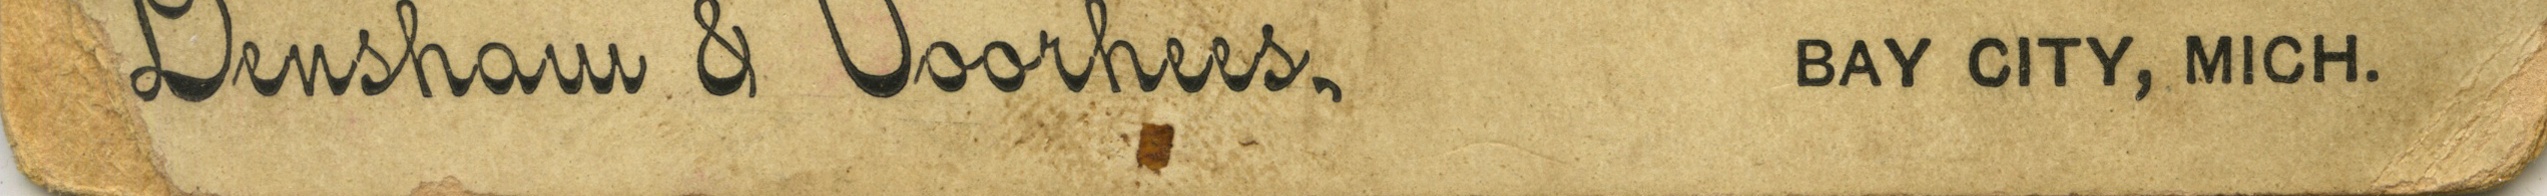 Denshaw & Voorhees, BAY CITY, MICH.